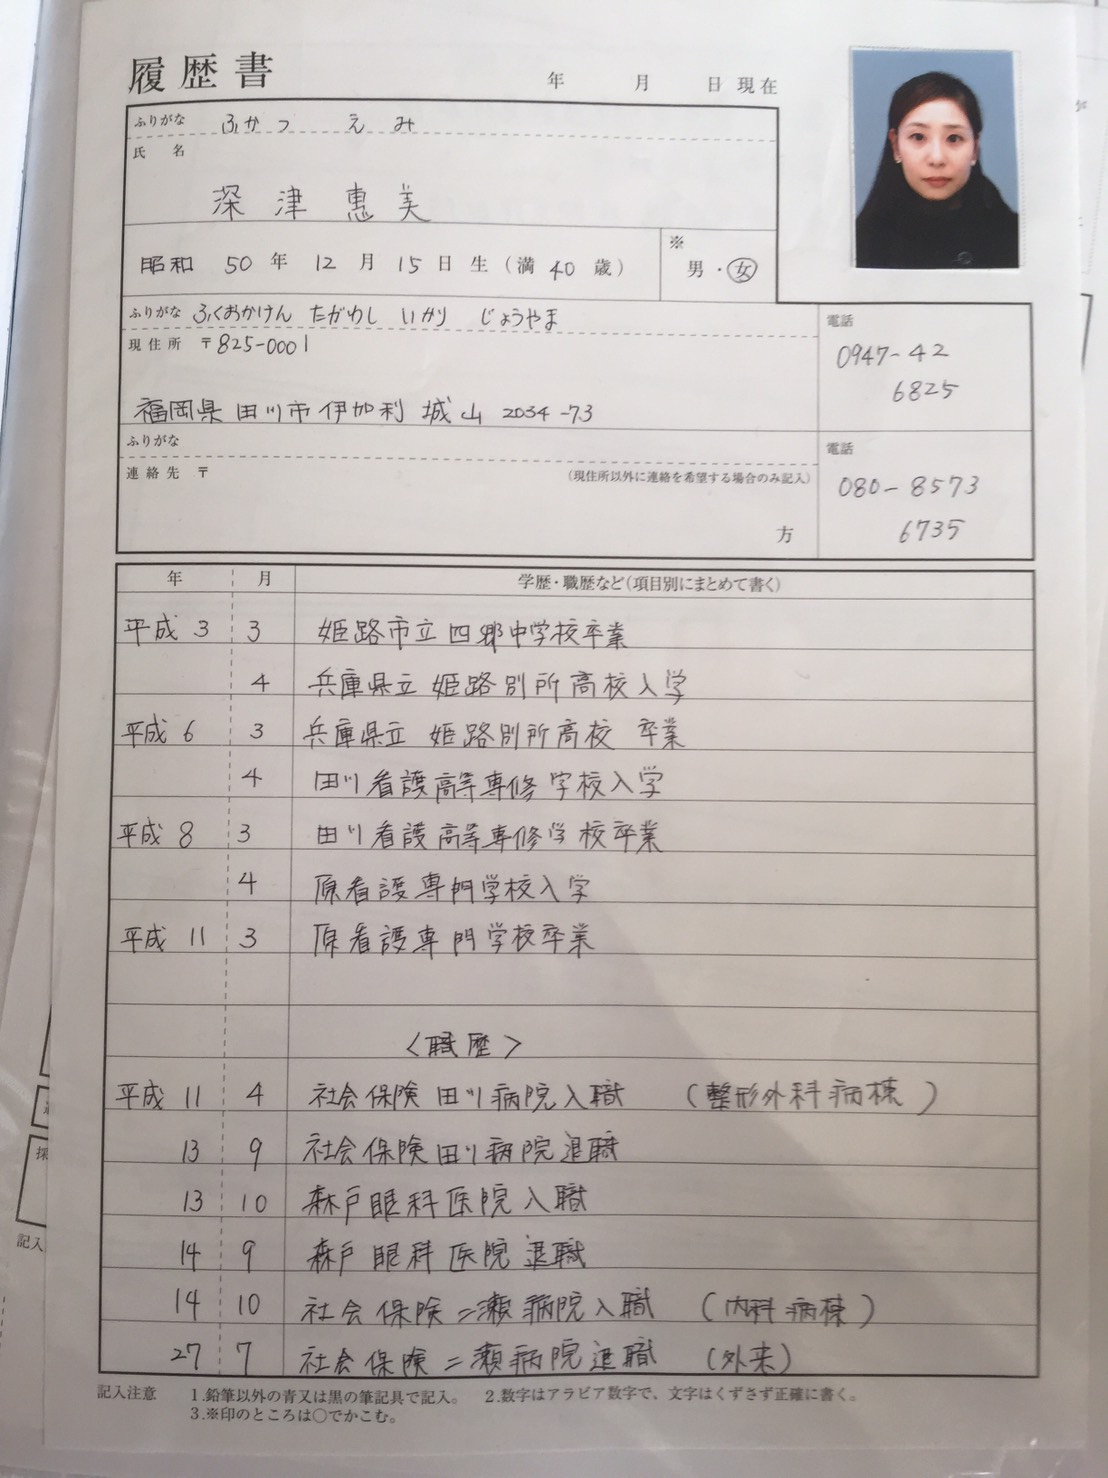 履歴書
年 月 日現在
ふりがな ふかつ えみ
氏名
深津 恵美
昭和 50 年 12 月 15 日 生 (満 40 歳)
※
男・女
ふりがな ふくおかけん たがわし いかり じょうやま
現住所 〒825-0001
福岡県 田川市 伊加利 城山 2034-73
電話
0947-42
6825
ふりがな
連絡先 〒
(現住所以外に連絡を希望する場合のみ記入)
方
電話
080-8573
6735
年 月 学歴・職歴など(項目別にまとめて書く)
平成 3 3 姫路市立 四郷中学校卒業
4 兵庫県立 姫路別所高校入学
平成 6 3 兵庫県立 姫路別所高校 卒業
4 田川看護高等専修学校入学
平成 8 3 田川看護高等専修学校卒業
4 原看護専門学校入学
平成 11 3 原看護専門学校卒業
<職歴>
平成 11 4 社会保険 田川病院入職 (整形外科病棟)
13 9 社会保険田川病院退職
13 10 森戸眼科医院入職
14 9 森戸眼科医院退職
14 10 社会保険二瀬病院入職 (内科病棟)
27 7 社会保険二瀬病院退職 (外来)
記入注意 1.鉛筆以外の青又は黒の筆記具で記入。 2.数字はアラビア数字で、文字はくずさず正確に書く。
3.※印のところは○でかこむ。
記入